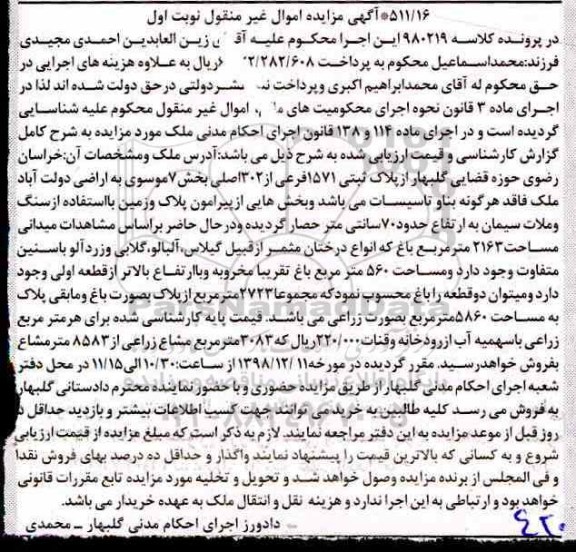 ۵۱۱/۱۶*آگهی مزایده اموال غیر منقول نوبت اول
در پرونده کلاسه ۹۸۰۲۱۹ این اجرا محکوم علیه زین العابدین احمدی مجیدی
فرزند:محمداسماعیل محکوم به پرداخت ۲/۲۸۲/۶۰۸ ریال به علاوه هزینه های اجرایی در
حق محکوم له آقای محمدابراهیم اکبری وپرداخت دولتی درحق دولت شده اند لذا در
اجرای ماده ۳ قانون نحوه اجرای محکومیت های اموال غیر منقول محکوم علیه شناسایی
گردیده است و در اجرای ماده ۱۱۴ و ۱۳۸ قانون اجرای احکام مدنی ملک مورد مزایده به شرح کامل
گزارش کارشناسی و قیمت ارزیابی شده به شرح ذیل می باشد:آدرس ملک ومشخصات آن:خراسان
رضوی حوزه قضایی گلبهار ازپلاک ثبتی ۱۵۷۱فرعی از۳۰۲اصلی بخش۷موسوی به اراضی دولت آباد
ملک فاقد هرگونه بناو تاسیسات می باشد وبخش هایی ازپیرامون پلاک وزمین بااستفاده ازسنگ
وملات سیمان به ارتفاع حدود۷۰سانتی متر حصار گردیده ودرحال حاضر براساس مشاهدات میدانی
مساحت۲۱۶۳ مترمربع باغ که انواع درختان مثمر ازقبیل گیلاس،آلبالو،گلابی وزردآلو باسنین
متفاوت وجود دارد ومساحت ۵۶۰ متر مربع باغ تقریبا مخروبه وباارتفاع بالاتر ازقطعه اولی وجود
دارد ومیتوان دوقطعه را باغ محسوب نمودکه مجموعا۲۷۲۳مترمربع ازپلاک بصورت باغ ومابقی پلاک
به مساحت ۵۸۶۰مترمربع بصورت زراعی می باشد. قیمت پایه کارشناسی شده برای هرمتر مربع
زراعی باسهمیه آب ازرودخانه وقنات۲۲۰/۰۰۰ریال که۳۰۸۳مترمربع مشاع زراعی از ۸۵۸۳ مترمشاع
بفروش خواهدرسید. مقرر گردیده در مورخه۱۳۹۸/۱۲/۱۱ از ساعت:۱۰/۳۰الی۱۱/۱۵ در محل دفتر
شعبه اجرای احکام مدنی گلبهار از طریق مزایده حضوری و با حضور نماینده محترم دادستانی گلبهار
به فروش می رسد کلیه طالبین به خرید می توانند جهت کسب اطلاعات بیشتر و بازدید حداقل
روز قبل از موعد مزایده به این دفتر مراجعه نمایند. لازم به ذکر است که مبلغ مزایده از قیمت ارزیابی
شروع و به کسانی که بالاترین قیمت را پیشنهاد نمایند واگذار و حداقل ده درصد بهای فروش نقدا
و فی المجلس از برنده مزایده وصول خواهد شد و تحویل و تخلیه مورد مزایده تابع مقررات قانونی
خواهد بود و ارتباطی به این اجرا ندارد و هزینه نقل و انتقال ملک به عهده خریدار می باشد.
دادورز اجرای احکام مدنی گلبهار ــ محمدی